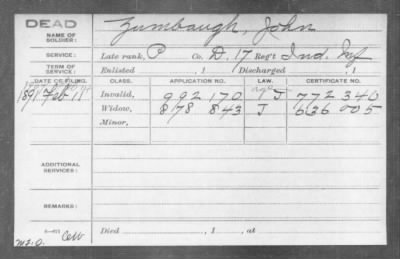 DEAD Zumbaugh, John
NAME OF SOLDIER:
SERVICE: Late rank, P Co. D, 17 Reg't Ind. Inf
TERM OF SERVICE: Enlisted , 1 Discharged , 1
DATE OF FILING. CLASS. APPLICATION NO. LAW. CERTIFICATE NO.
1891 Feb 11 Invalid, 992 170 J 772 340
Widow, 878 843 J 636 005
Minor,
ADDITIONAL SERVICES:
REMARKS:
Died , 1 , at